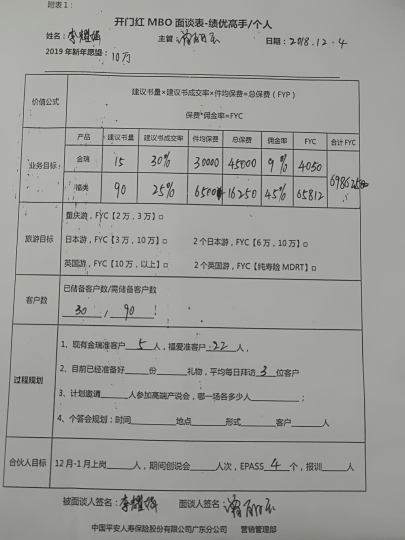 附表1：
开门红 MBO 面谈表-绩优高手/个人
姓名：李耀 主管： 日期：2018.12.4
2019年新年愿望：10万
价值公式 建议书量×建议书成交率×件均保费=总保费（FYP）
保费*佣金率=FYC
产品 建议书量 建议书成交率 件均保费 总保费 佣金率 FYC 合计 FYC
业务目标： 金瑞 15 30% 30000 45000 9% 4050
福类 90 25% 6500 16250 45% 65812
重庆游，FYC【2万，3万】□
旅游目标 日本游，FYC【3万，10万】□ 2个日本游，FYC【6万，10万】□
英国游，FYC【10万，以上】□ 2个英国游，FYC【纯寿险 MDRT】□
客户数 已储备客户数/需储备客户数
30 / 90 !
过程规划
1、现有金瑞准客户 5 人，福爱准客户：22 人，
2、目前已经准备好____份____礼物，平均每日拜访 3 位客户
3、计划邀请____人参加高端产说会，哪一场各多少人____；
4、个答会规划：时间____地点____形式____客户____人
合伙人目标 12月-1月上岗____人，期间创说会____人次，EPASS 4 个，报训____人
被面谈人签名：李耀 面谈人签名：
中国平安人寿保险股份有限公司广东分公司 营销管理部